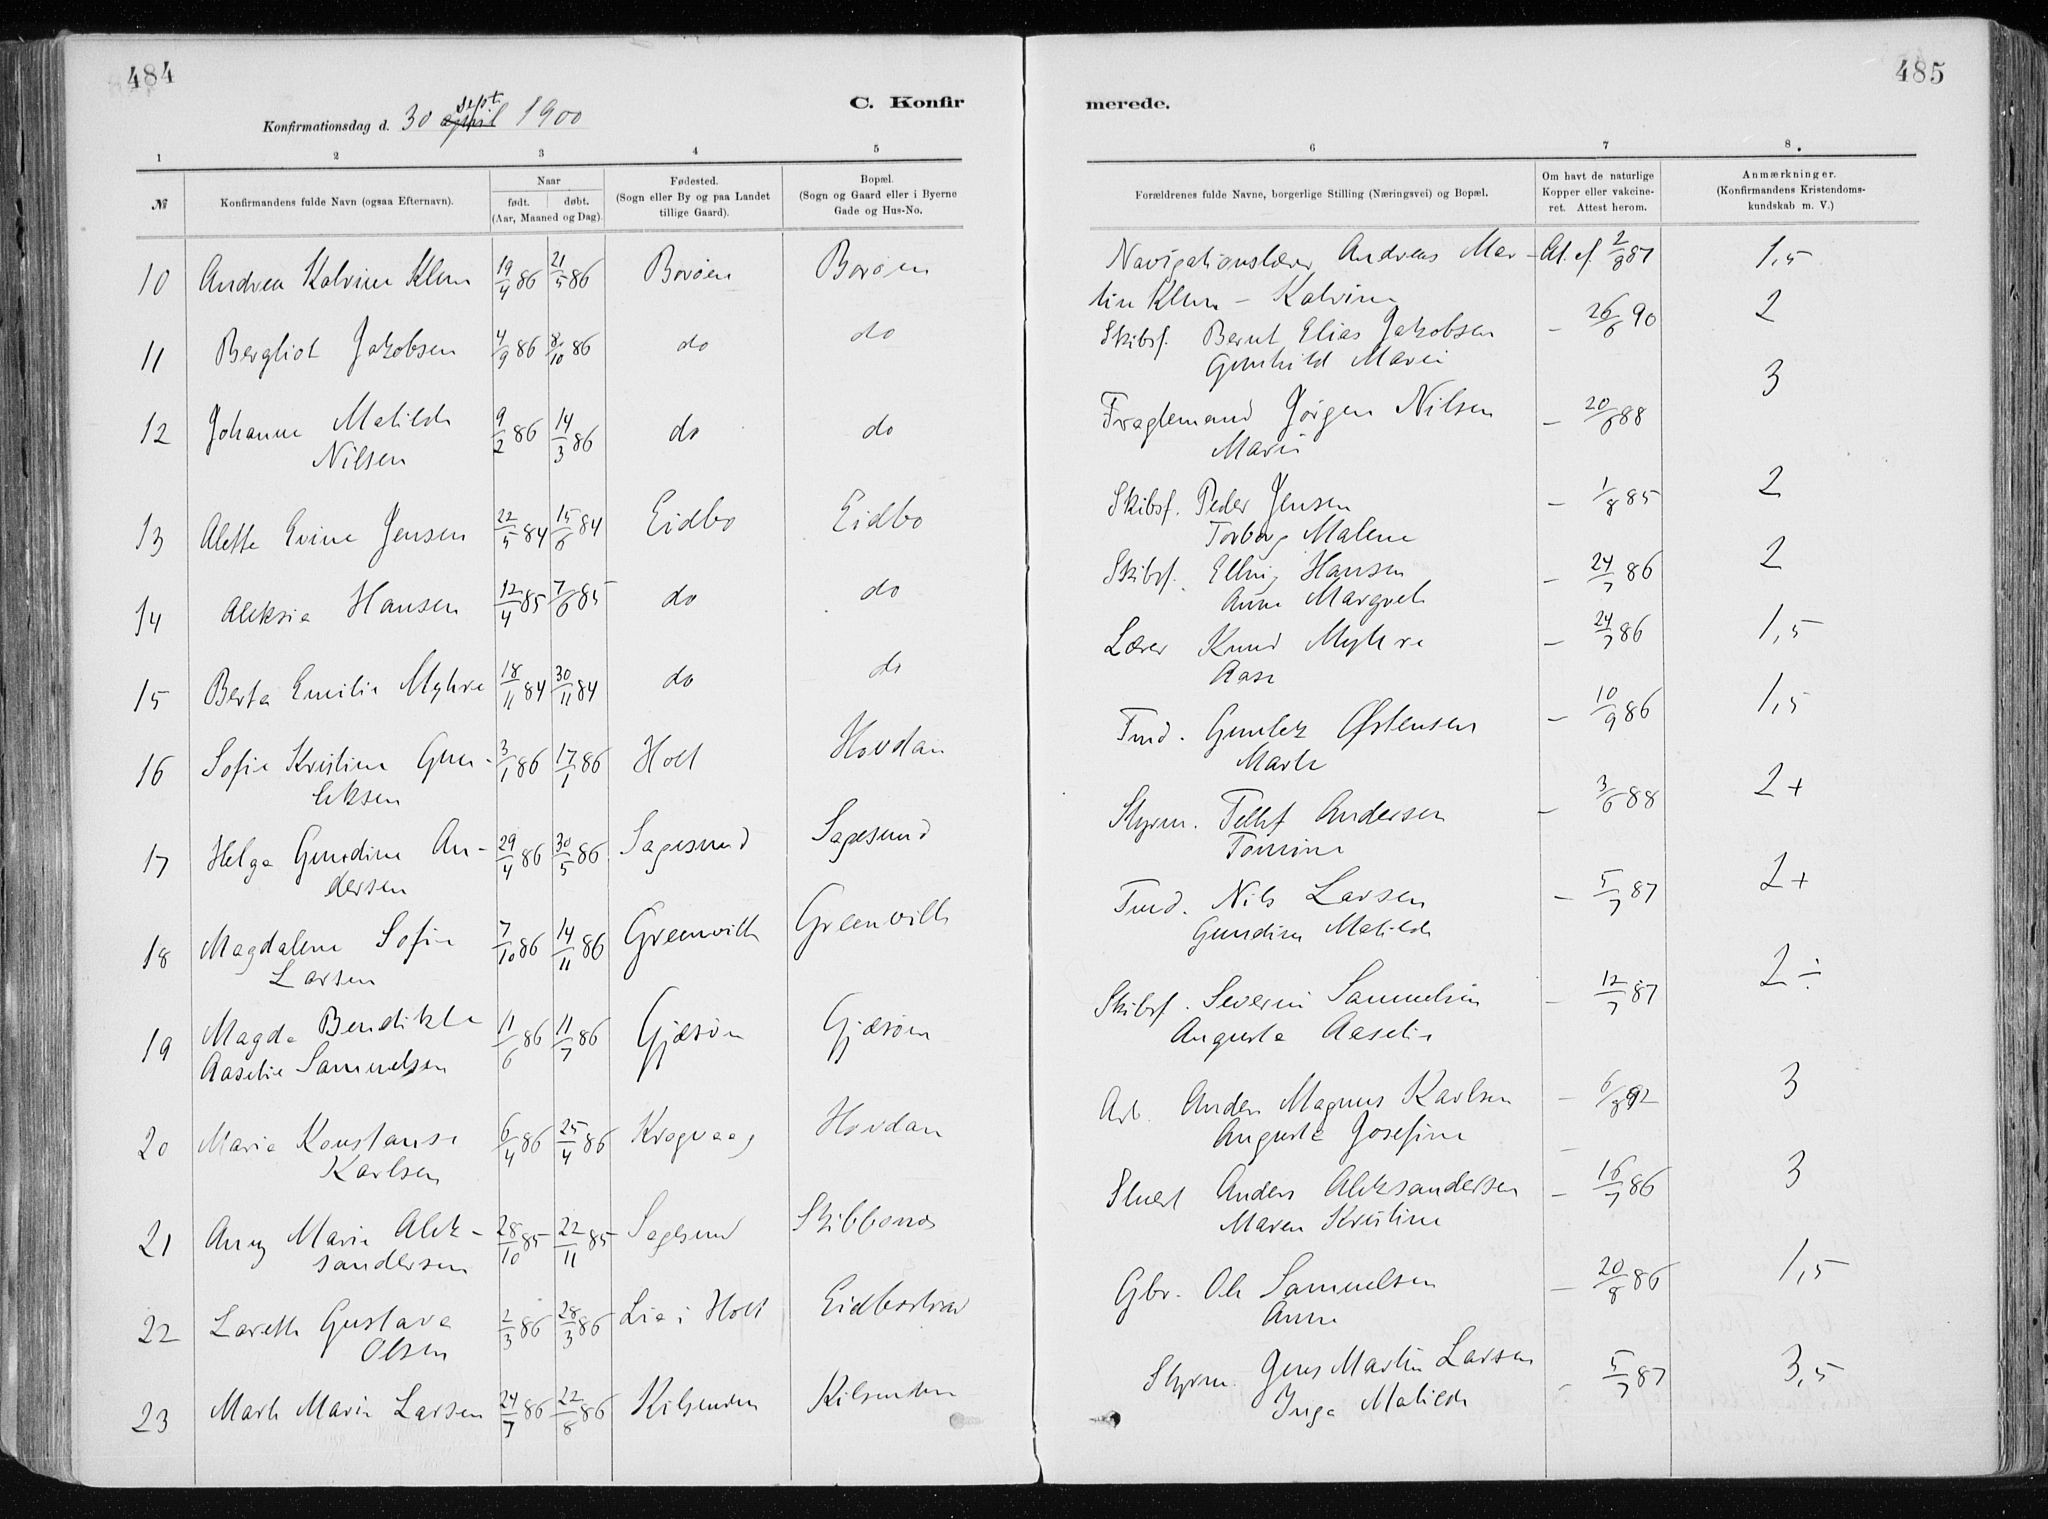 484
C. Konfir
Konfirmationsdag d. 30 april sept 1900
1 2 3 4 5
№
Konfirmandens fulde Navn (ogsaa Efternavn).
Naar
født. døbt.
(Aar, Maaned og Dag).
Fødested.
(Sogn eller By og paa Landet
tillige Gaard).
Bopæl.
(Sogn og Gaard eller i Byerne
Gade og Hus-No.
10 Andrea Kalvine Klem 19/4 86 21/5 86 Borøen Borøen
11 Bergliot Jakobsen 4/9 86 8/10 86 do do
12 Johanne Matilde 9/2 86 14/3 86 do do
Nilsen
13 Alette Evine Jensen 22/5 84 15/6 84 Eidbo Eidbo
14 Aleksia Hansen 12/4 85 7/6 85 do do
15 Berta Emilie Myhre 18/11 84 30/11 84 do do
16 Sofie Kristine Gun- 3/1 86 17/1 86 Holt Hovdan
leksen
17 Helga Gundine An- 29/4 86 30/5 86 Sagesund Sagesund
dersen
18 Magdalene Sofie 7/10 86 14/11 86 Greenville Greenville
Larsen
19 Magda Bendikte 11/6 86 11/7 86 Gjæsøn Gjæsøn
Aaselie Samuelsen
20 Marie Konstanse 6/4 86 25/4 86 Krogvaag Hovdan
Karlsen
21 Anny Marie Alek- 28/10 85 22/11 85 Sagesund Skibbenes
sandersen
22 Lareth Gustava 2/3 86 28/3 86 Lia i Holt Eidbostrand
Olsen
23 Marthe Marie Larsen 24/7 86 22/8 86 Kilsenden Kilsenden
485
merede.
6 7 8.
Forældrenes fulde Navne, borgerlige Stilling (Næringsvei) og Bopæl.
Om havt de naturlige
Kopper eller vakcine-
ret. Attest herom.
Anmærkninger.
(Konfirmandens Kristendoms-
kundskab m. V.)
Navigationslærer Andreas Mar- At. af 2/8 87 1,5
tin Klem - Kalvine
Skibsf. Bernt Elias Jakobsen - 26/6 90 2
Gunhild Marie
Fragtemand Jørgen Nilsen - 20/6 88 3
Marie
Skibsf. Peder Jensen - 1/8 85 2
Torborg Malene
Skibsf. Elling Hansen - 24/7 86 2
Anne Margrete
Lærer Knud Myhre - 24/7 86 1,5
Aase
Tmd. Gunlek Østensen - 10/9 86 1,5
Marthe
Styrm. Tellef Andersen - 3/6 88 2+
Tomine
Tmd. Nils Larsen - 5/7 87 2+
Gundine Matilde
Skibsf. Severin Samuelsen - 12/7 87 2÷
Augusta Aaselie
Arb. Anders Magnus Karlsen - 6/8 92 3
Augusta Josefine
Stuert Anders Aleksandersen - 16/7 86 3
Maren Kristine
Gbr. Ole Samuelsen - 20/8 86 1,5
Anne
Styrm. Jens Martin Larsen - 5/7 87 3,5
Inga Matilde